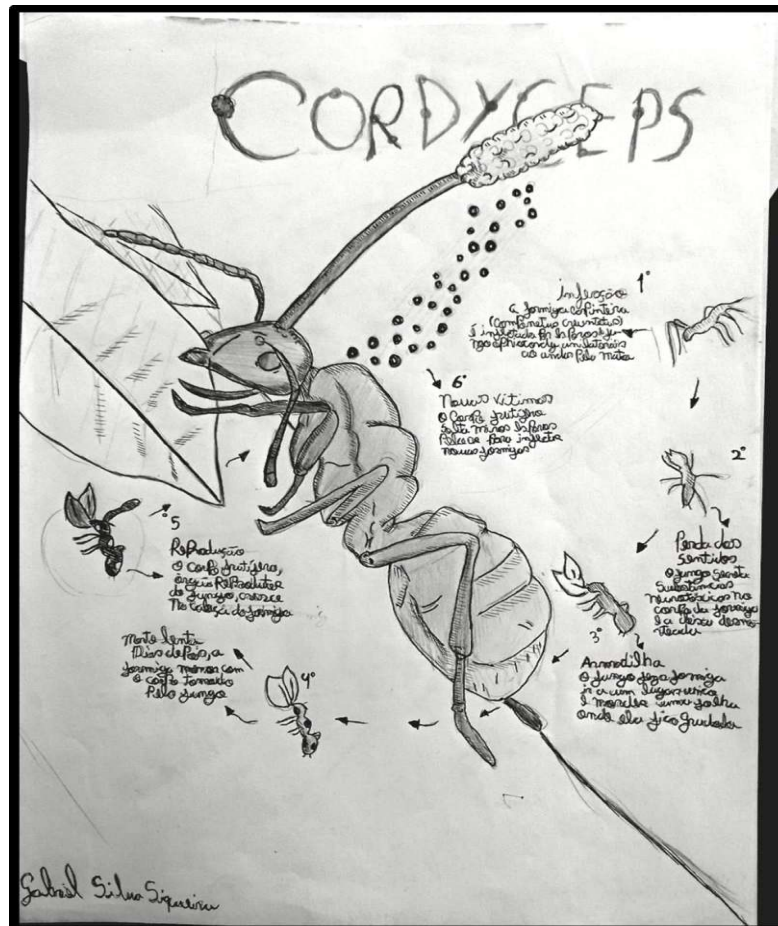 CORDYCEPS
1°
Infecção
a formiga carpinteira
(Camponotus
é infectada por esporos do fun-
go
ao andar pela mata
2°
Perda dos
sentidos
O fungo secreta
substâncias
neurotóxicas no
corpo da formiga
e a deixa desnor-
teada
3°
Armadilha
O fungo faz a formiga
ir a um lugar
e morder uma folha
onde ela fica grudada
4°
Morte lenta
Dias depois, a
formiga morre com
o corpo tomado
pelo fungo
°5
Reprodução
O corpo frutífero,
órgão reprodutor
do fungo, cresce
na cabeça da formiga
6°
Novas vítimas
O corpo frutífero
solta novos esporos
para infectar
novas formigas
Gabriel Silva Siqueira